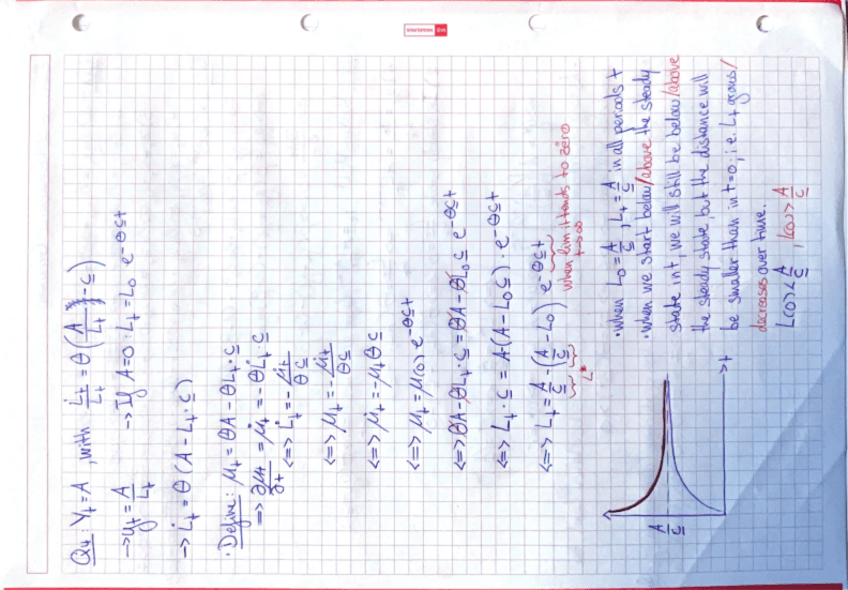 Q4: Y_t = A , with L̇_t/L_t = θ(A/L_t - c̲)
→ y_t = A/L_t → If A=0: L_t = L_0 e^{-θc̲t}
→ L̇_t = θ(A - L_t·c̲)
· Define: μ_t = θA - θL_t·c̲
=> ∂μ_t/∂t = μ̇_t = -θL̇_t·c̲
<=> L̇_t = - μ̇_t/θc̲
<=> μ_t = - μ̇_t/θc̲
<=> μ̇_t = -μ_t θc̲
<=> μ_t = μ(0) e^{-θc̲t}
<=> θA - θL_t·c̲ = θA - θL_0c̲ e^{-θc̲t}
<=> L_t·c̲ = A(A - L_0c̲)·e^{-θc̲t}
<=> L_t = A/c̲ - (A/c̲ - L_0) e^{-θc̲t}
L*
when lim t tends to zero
t→∞
· when L_0 = A/c̲ , L_t = A/c̲ in all periods t
· when we start below/above the steady
state in t, we will still be below/above
the steady state, but the distance will
be smaller than in t=0; i.e. L_t grows/
decreases over time.
L(0) < A/c̲ , L(0) > A/c̲
A/c̲
t